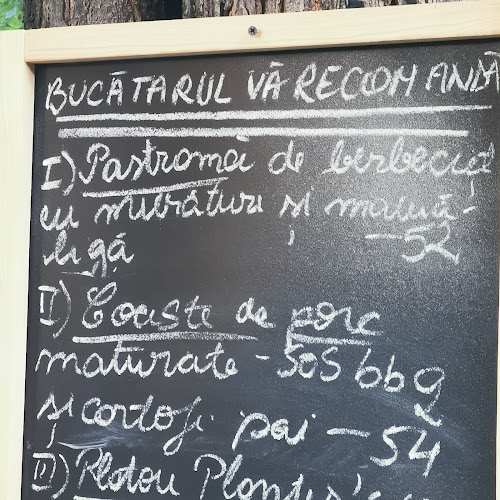 BUCĂTARUL VĂ RECOMANDĂ
I) Pastramă de berbecuț
cu murături și mămă-
ligă -52
II) Coaste de porc
maturate - SOS bbq
și cartofi pai - 54
III) Platou